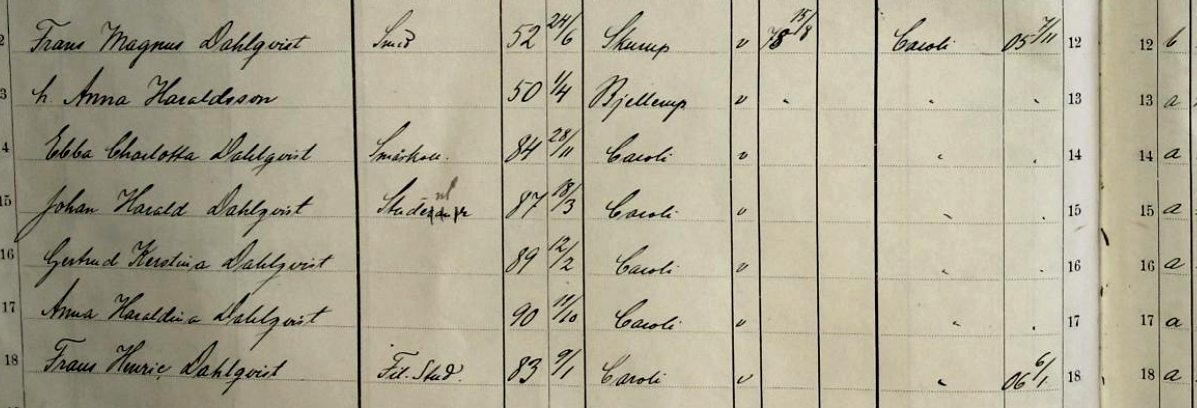 2 Frans Magnus Dahlqvist Smed 52 24/6 Skurup v 78 15/8 Caroli 05 7/11 12 12 b
3 h. Anna Haraldsson 50 1/4 Bjellerup v " " " 13 13 a
4 Ebba Charlotta Dahlqvist Småskol. 84 28/11 Caroli v " " 14 14 a
15 Johan Harald Dahlqvist Student 87 18/3 Caroli v " " 15 15 a
16 Gertrud Kerstina Dahlqvist 89 12/2 Caroli v " " 16 16 a
17 Anna Haraldina Dahlqvist 90 11/10 Caroli v " " 17 17 a
18 Frans Henric Dahlqvist Fil. Stud. 83 9/1 Caroli v " 06 6/1 18 18 a